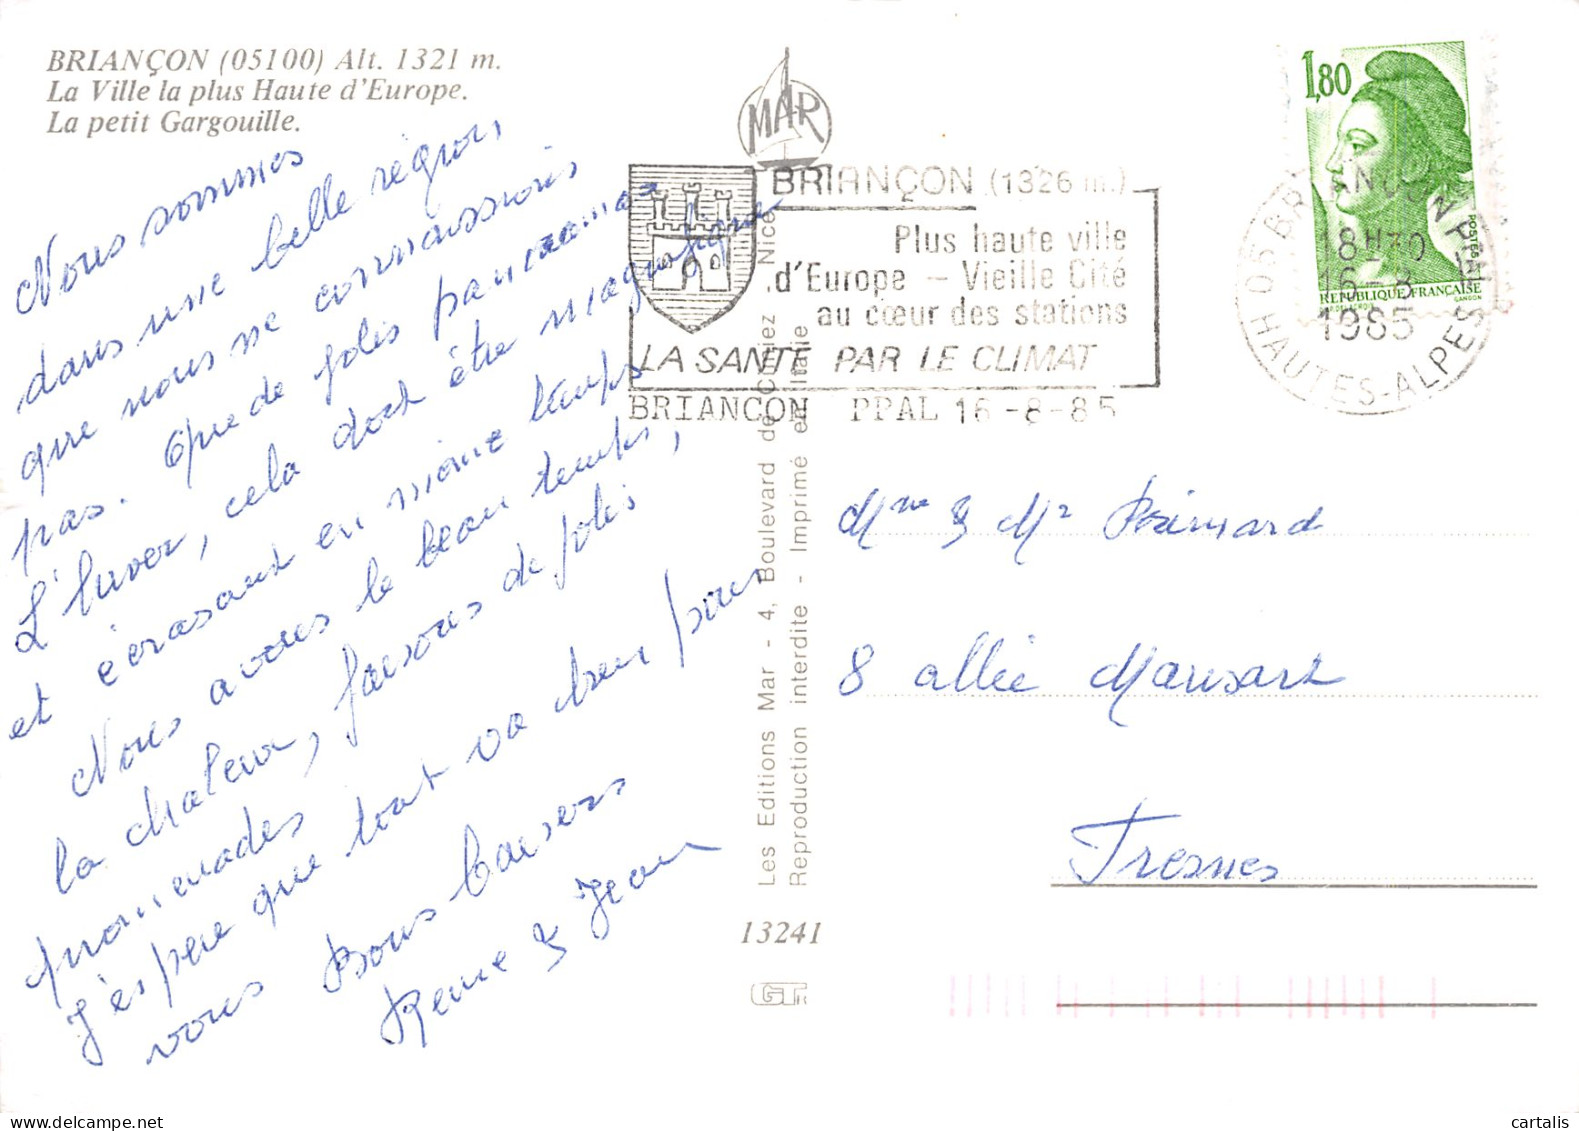 BRIANÇON (05100) Alt. 1321 m.
La Ville la plus Haute d'Europe.
La petit Gargouille.
Nous sommes
dans une belle région,
que nous ne connaissions
pas. Que de jolis panoramas
L'hiver, cela doit être magnifique
et écrasant en même temps
Nous avons le beau temps,
la chaleur, faisons de jolis
promenades
J'espère que tout va bien pour
vous Bons baisers
Renée & Jean
MAR
BRIANÇON (1326 m.)
Plus haute ville
d'Europe – Vieille Cité
au cœur des stations
LA SANTÉ PAR LE CLIMAT
BRIANCON PPAL 16-8-85
Les Editions Mar - 4, Boulevard de Nice
Reproduction interdite - Imprimé en Italie
13241
GT
1,80
POSTES
REPUBLIQUE FRANÇAISE
GANDON
05 BRIANCON PPAL
18H30
16-8
1985
HAUTES-ALPES
Mme & Mr
8 allée Mansart
Fresnes
cartalis